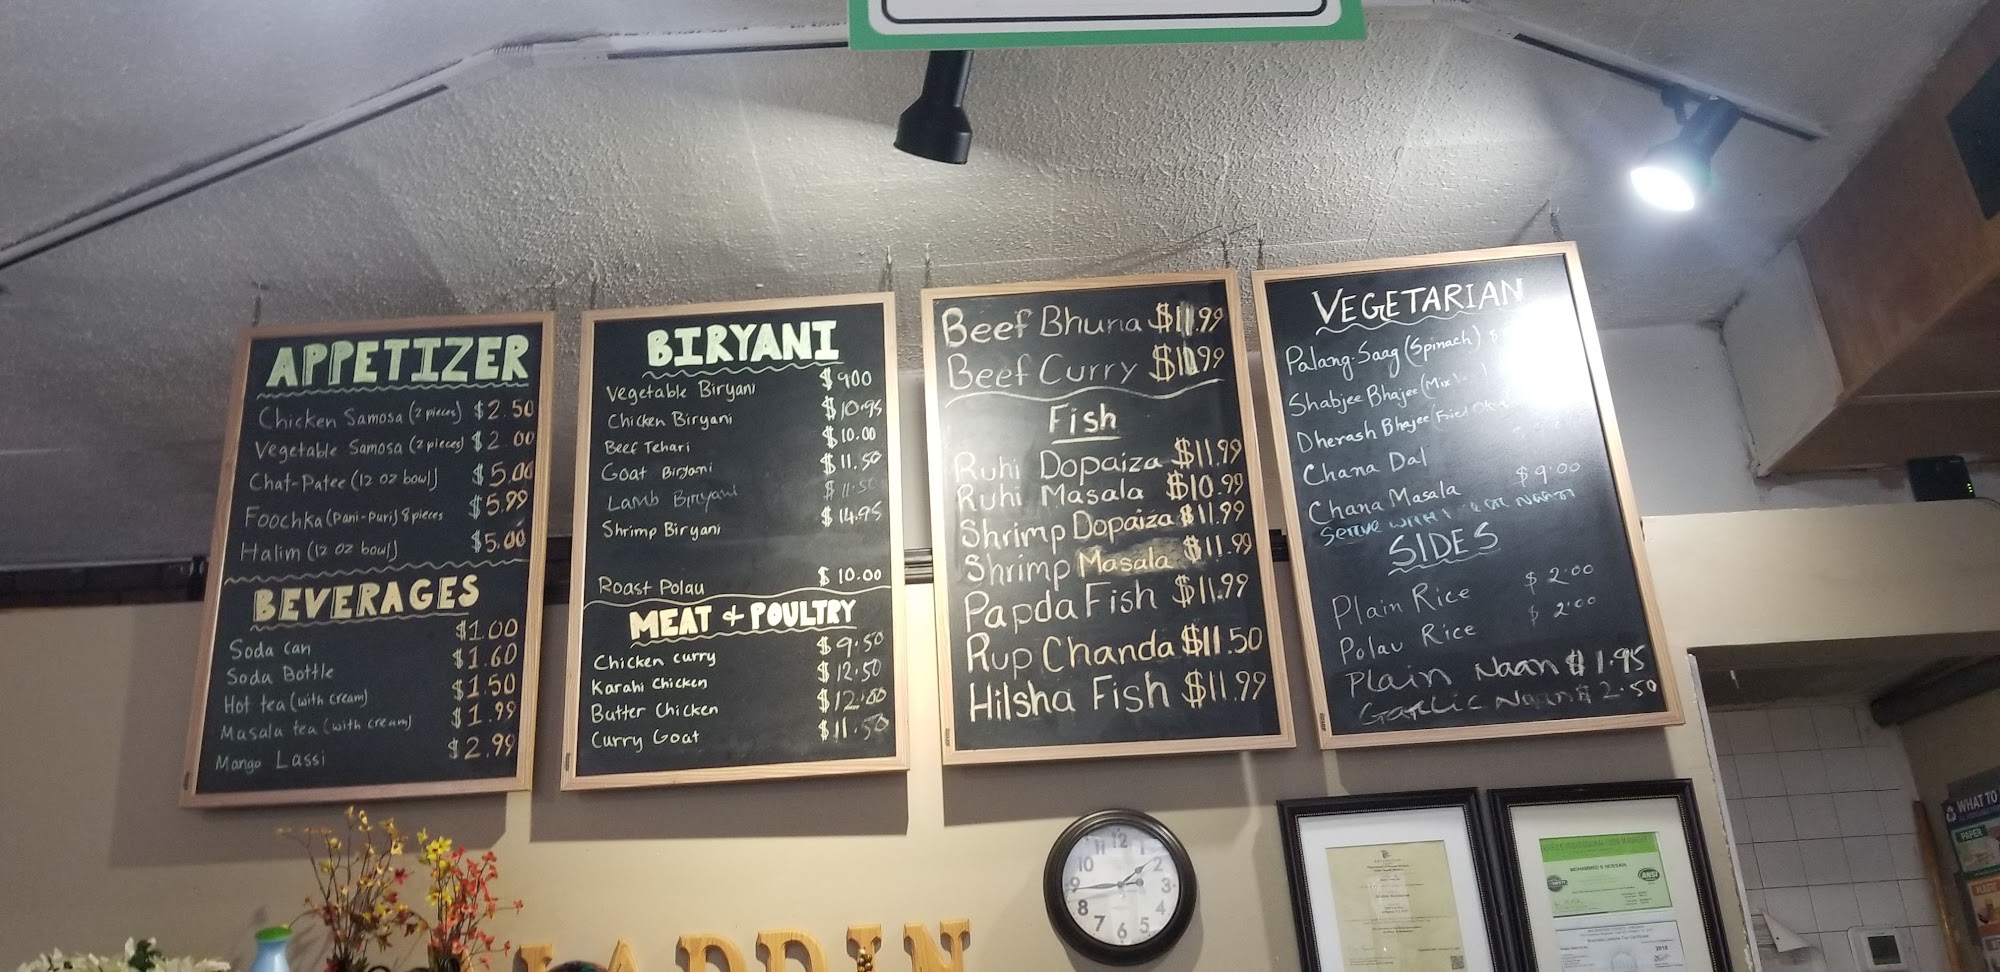 APPETIZER
Chicken Samosa (2 pieces) $2.50
Vegetable Samosa (2 pieces) $2.00
Chat-Patee (12 oz bowl) $5.00
Foochka (Pani-Puri) 8 pieces $5.99
Halim (12 oz bowl) $5.00
BEVERAGES
Soda Can $1.00
Soda Bottle $1.60
Hot tea (with cream) $1.50
Masala tea (with cream) $1.99
Mango Lassi $2.99
BIRYANI
Vegetable Biryani $9.00
Chicken Biryani $10.95
Beef Tehari $10.00
Goat Biryani $11.50
Lamb Biryani $11.50
Shrimp Biryani $14.95
Roast Polau $10.00
MEAT + POULTRY
Chicken curry $9.50
Karahi Chicken $12.50
Butter Chicken
Curry Goat $11.50
Beef Bhuna $11.99
Beef Curry
Fish
Ruhi Dopaiza $11.99
Ruhi Masala $10.99
Shrimp Dopaiza $11.99
Shrimp Masala $11.99
Papda Fish $11.99
Rup Chanda $11.50
Hilsha Fish $11.99
VEGETARIAN
Palang-Saag (Spinach)
Shabjee Bhajee (Mix
Dherash Bhajee (Fried
Chana Dal
Chana Masala $9.00
SERVE WITH
SIDES
Plain Rice $2.00
Polau Rice $2.00
Plain Naan $1.95
Garlic Naan $2.50
12
11
1
10
2
9
3
8
4
7
5
6
LADDIN
MOHAMMED S HOSSAIN
ANSI
2018
WHAT TO
PAPER